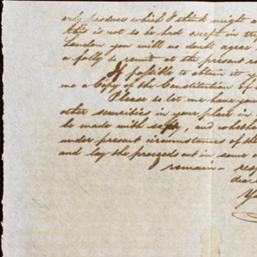 only produce which I think might a
this is not to be had except in tra
London you will no doubt agree
a folly to remit at the present ra
If possible to obtain it y
me a Copy of the Constitution of
Please to let me have you
other securities in your place in
to be made with safty, and whethe
under present circumstances of the
and lay the proceeds out in some o
remain - resp
dear
Yo